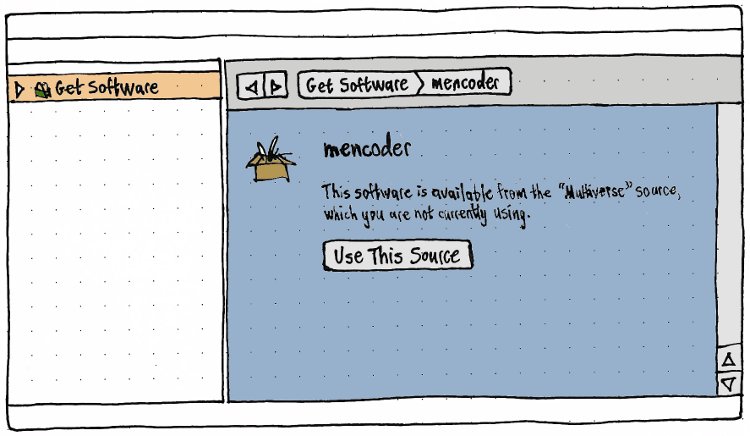 Get Software
Get Software mencoder
mencoder
This software is available from the "Multiverse" source,
which you are not currently using.
Use This Source